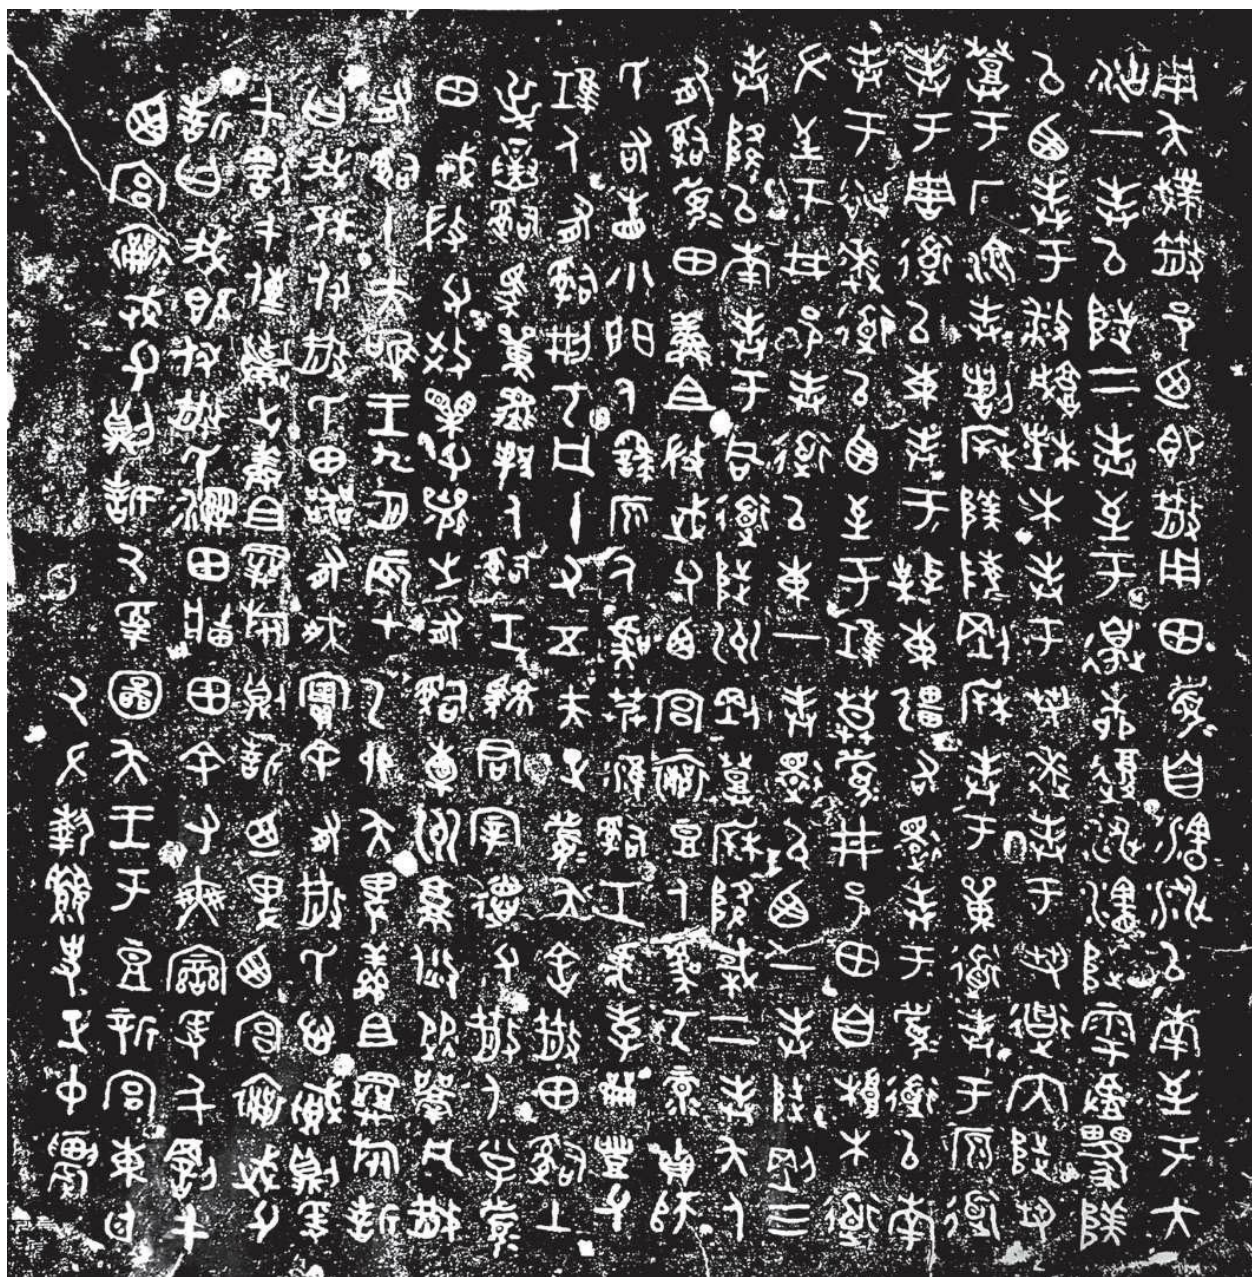 用夨撲散邑迺即散用田眉自瀗涉以南至于大
沽一封以陟二封至于邊柳復涉瀗陟雩
以西封于城楮木封于芻逨封于芻道內陟芻
登于厂湶封陵剛封于單道封于原道
封于周道以東封于東疆右還封于眉道以南
封于逨道以西至于鴻莫眉井邑田自桹木道
左至于井邑封道以東一封還以西一封陟剛三
封降以南封于同道陟州剛登降棫二封夨人
有司眉田鮮且微武父西宮襄豆人虞丂彔貞師
氏右眚小門人繇原人虞艿淮司工虎孝龠豐父
鴻人有司刑丂凡十又五夫正眉夨舍散田司土
司馬人司工君宰德父散人小子眉
田戎微父效櫐父襄之有司橐州攸從鬲凡散
有司十夫唯王九月辰在乙卯夨俾鮮且旅誓
曰我既付散氏田器有爽實余有散氏心賊則爰
千罰千傳棄之鮮且旅則誓迺俾西宮襄武父
誓曰我既付散氏濕田田余有爽變爰千罰千
西宮襄武父則誓厥受圖夨王于豆新宮東廷
厥左執史正中農